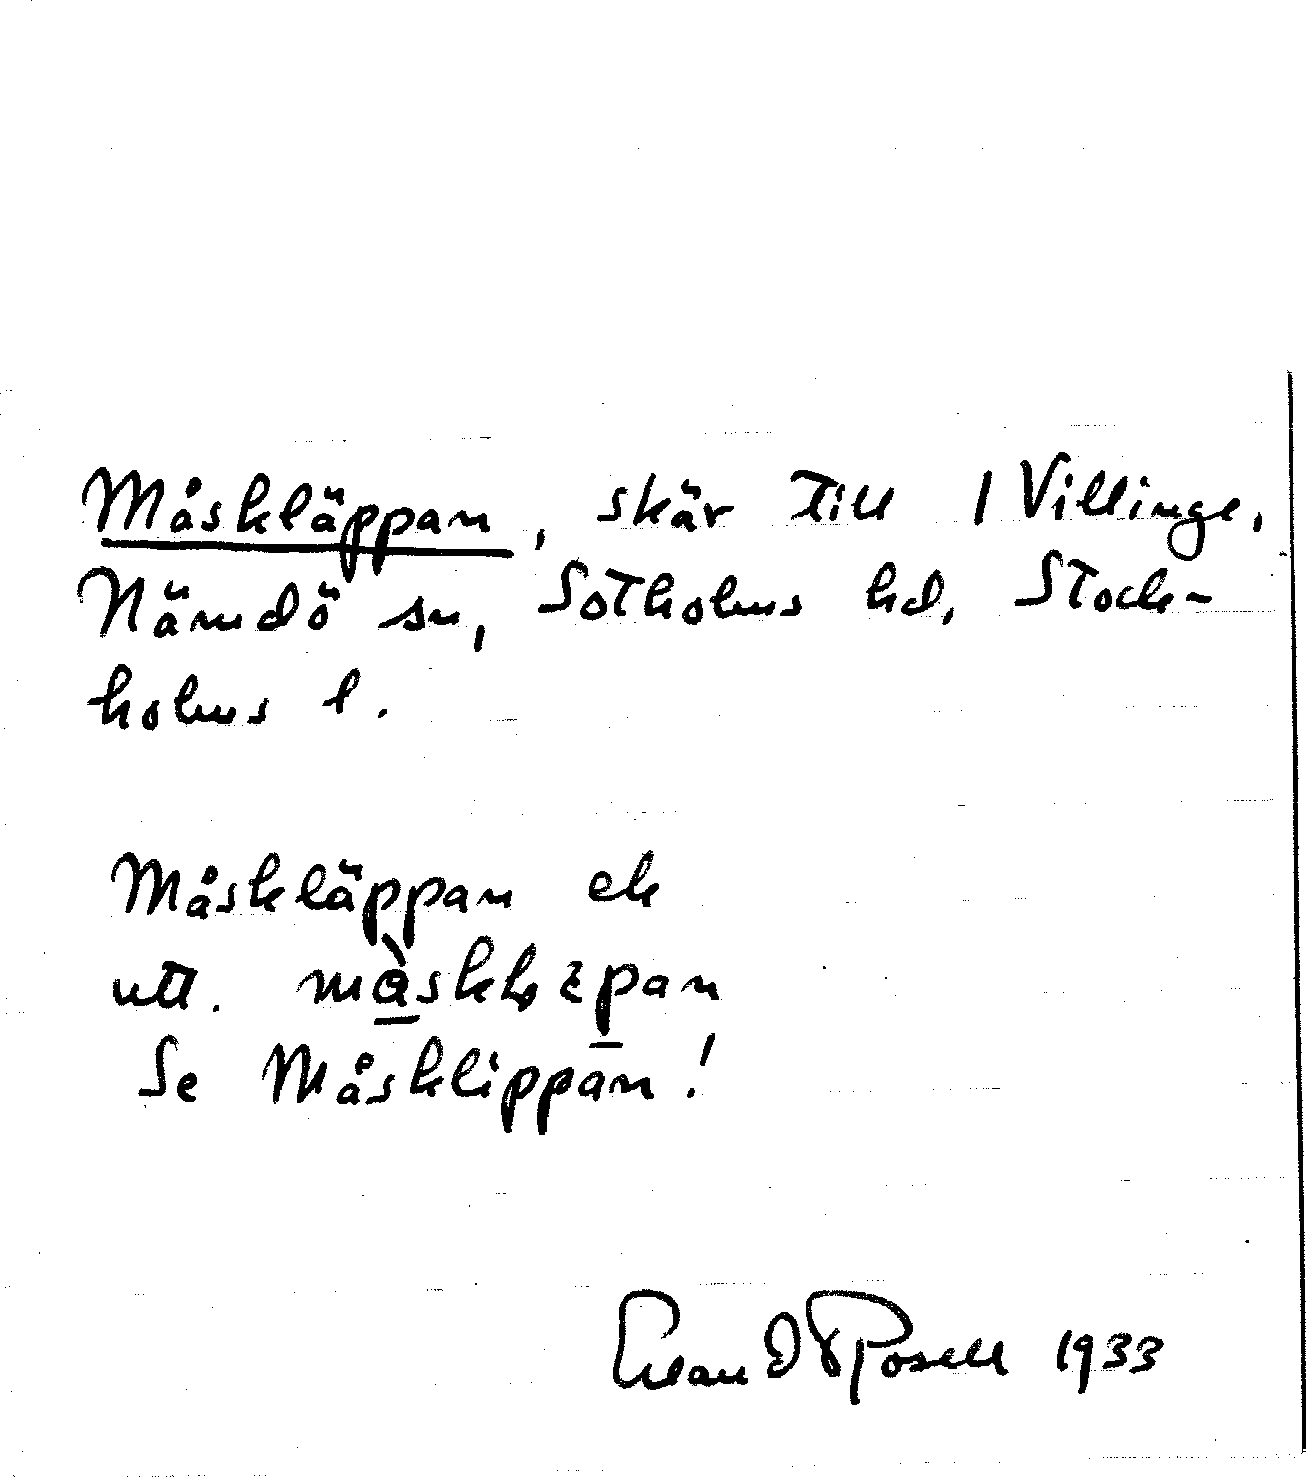 Måskläppan, skär till 1 Villinge,
Nämdö sn, Sotholms hd, Stock-
holms l.
Måskläppan ek
utt.
Se Måsklippan!
Rosell 1933